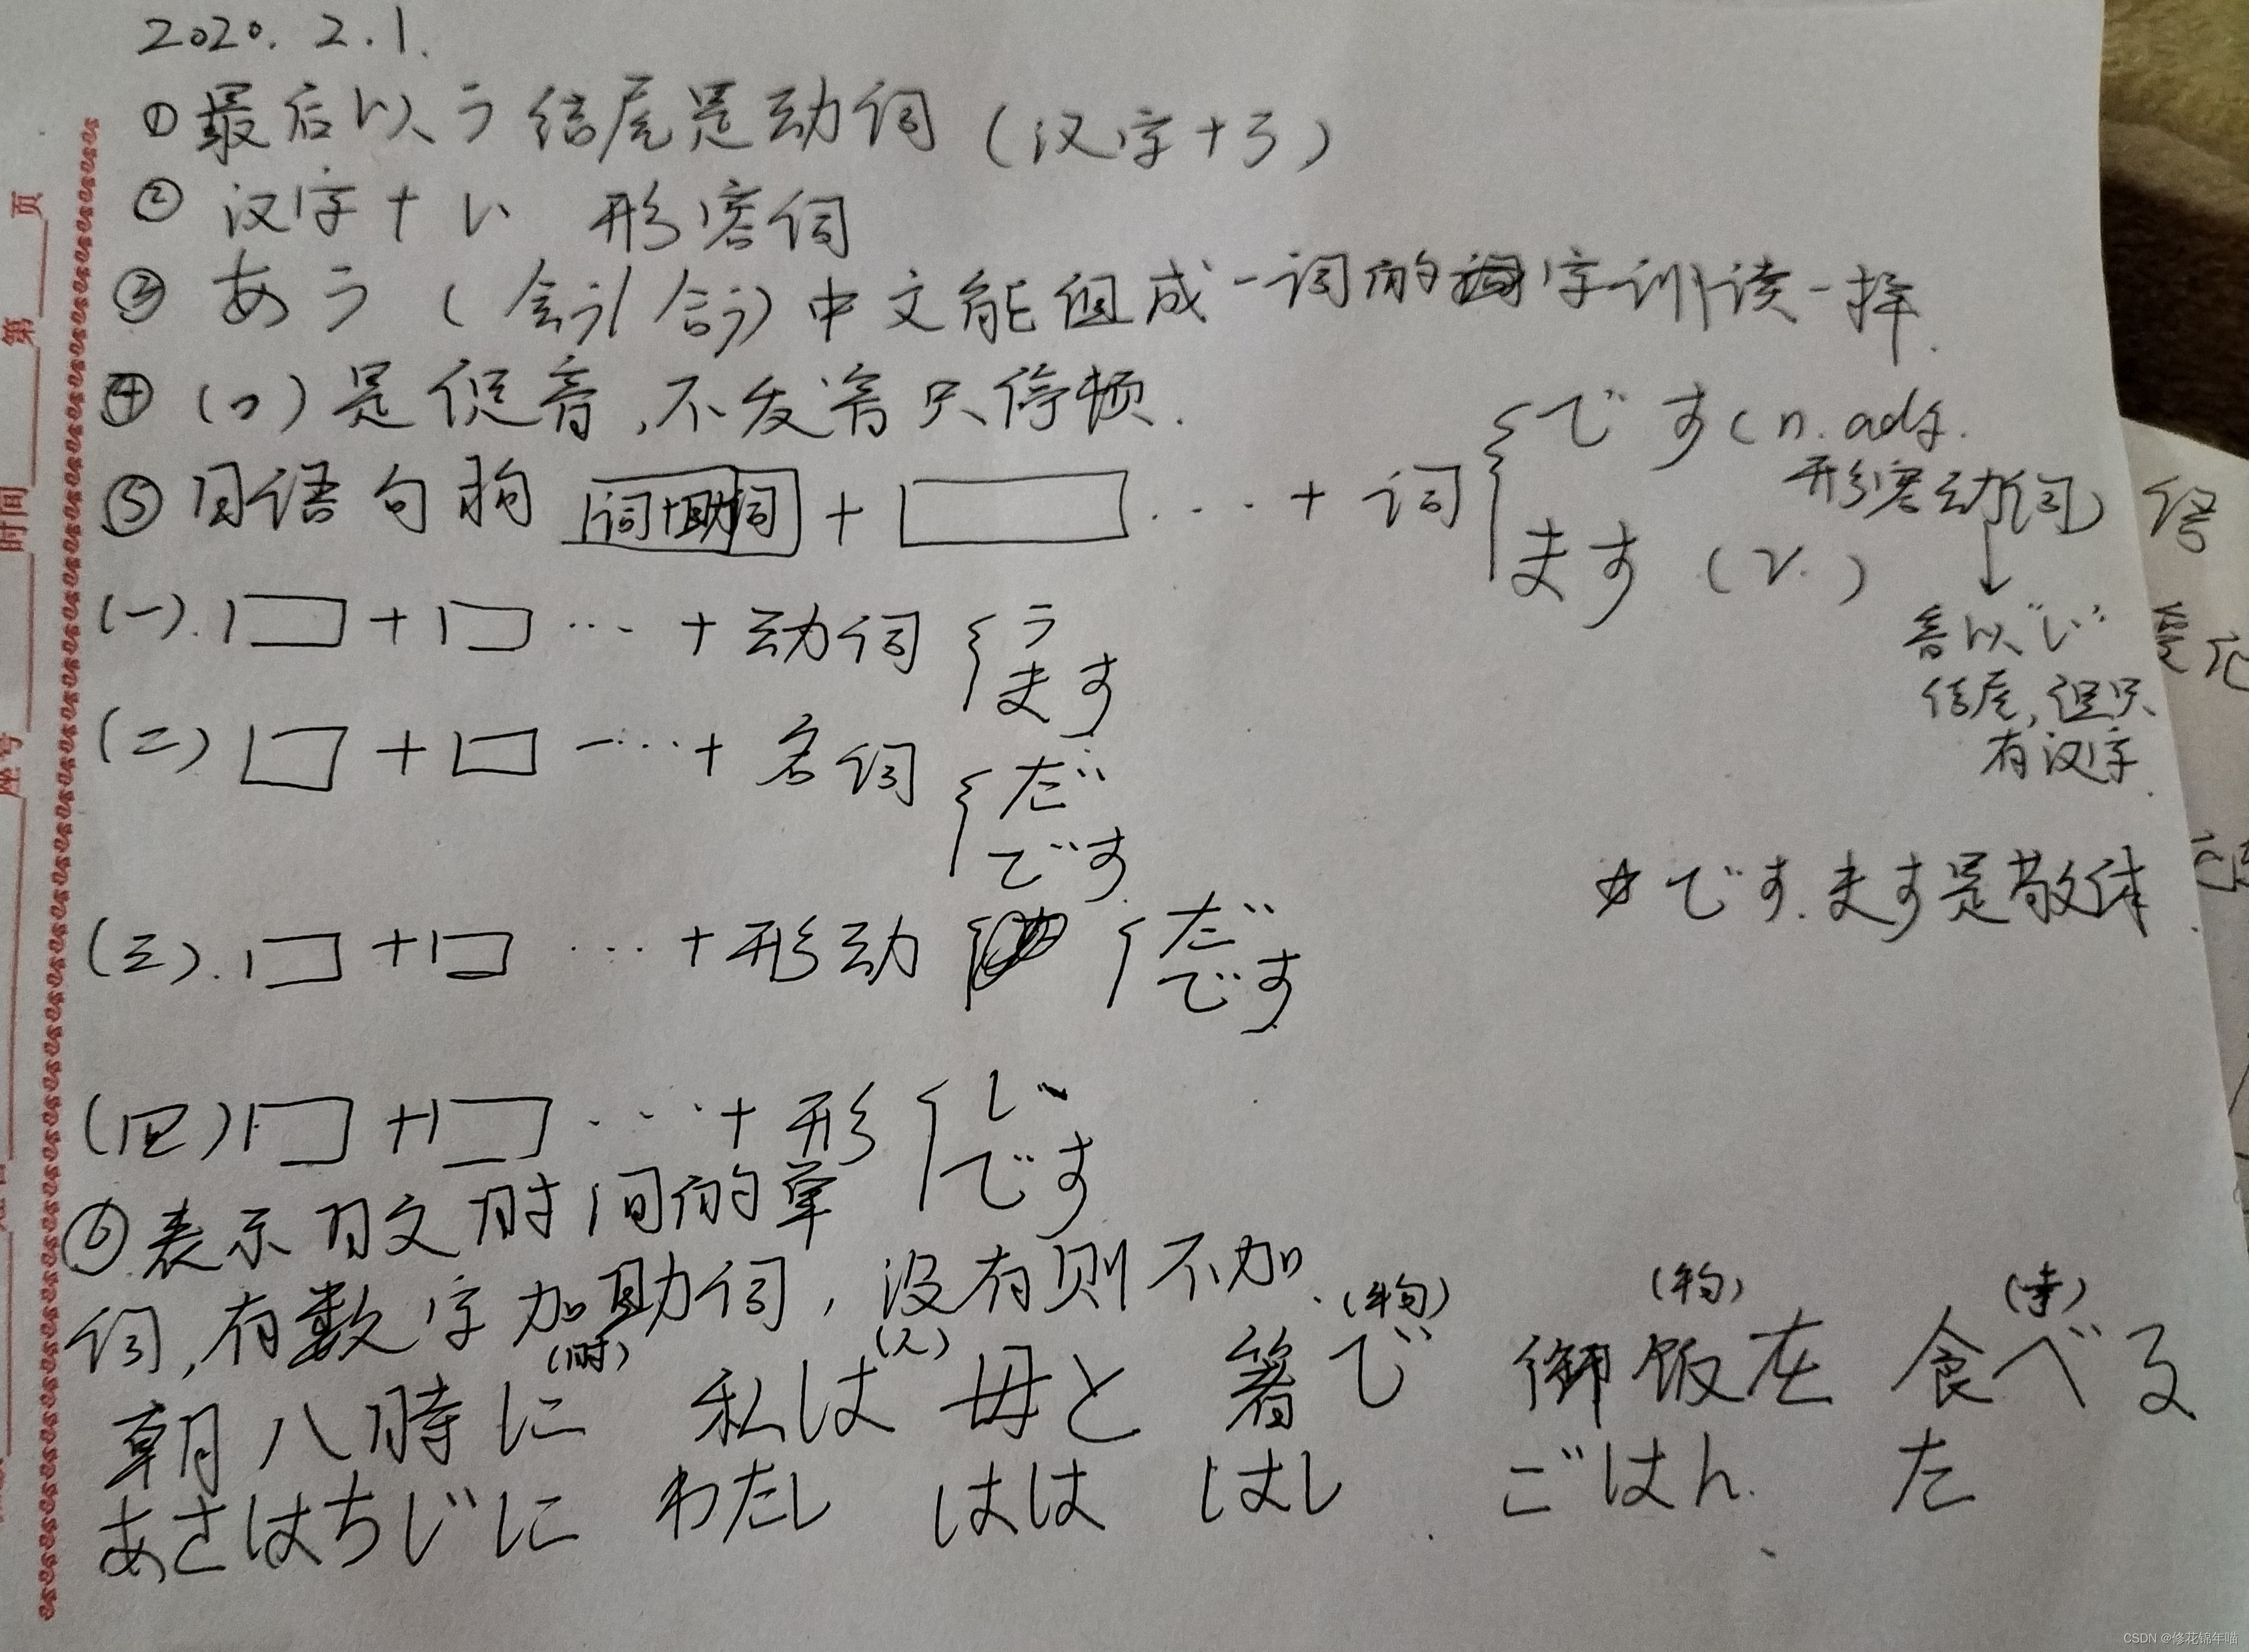 2020. 2. 1.
①最后以う结尾是动词（汉字+う）
② 汉字+い 形容词
③ あう（会う/合う）中文能组成一词的字训读一样.
④（っ）是促音,不发音只停顿.
⑤日语句构 词+助词 + ... + 词 { です（n. adj. 形容动词）
ます（v.）
↓
音以“い”
结尾,但只
有汉字.
(一). + ... + 动词 { う
ます
(二) + ... + 名词 { だ
です
☆です.ます是敬体.
(三). + ... + 形动 { だ
です
(四) + ... + 形 { い
です
⑥表示日文时间的单
词,有数字加助词,没有则不加.
(时) (人) (物)
朝八時に 私は 母と 箸で 御飯を 食べる
あさはちじに わたし はは はし ごはん た
第 页
时间
座号
CSDN @修花锦年喵